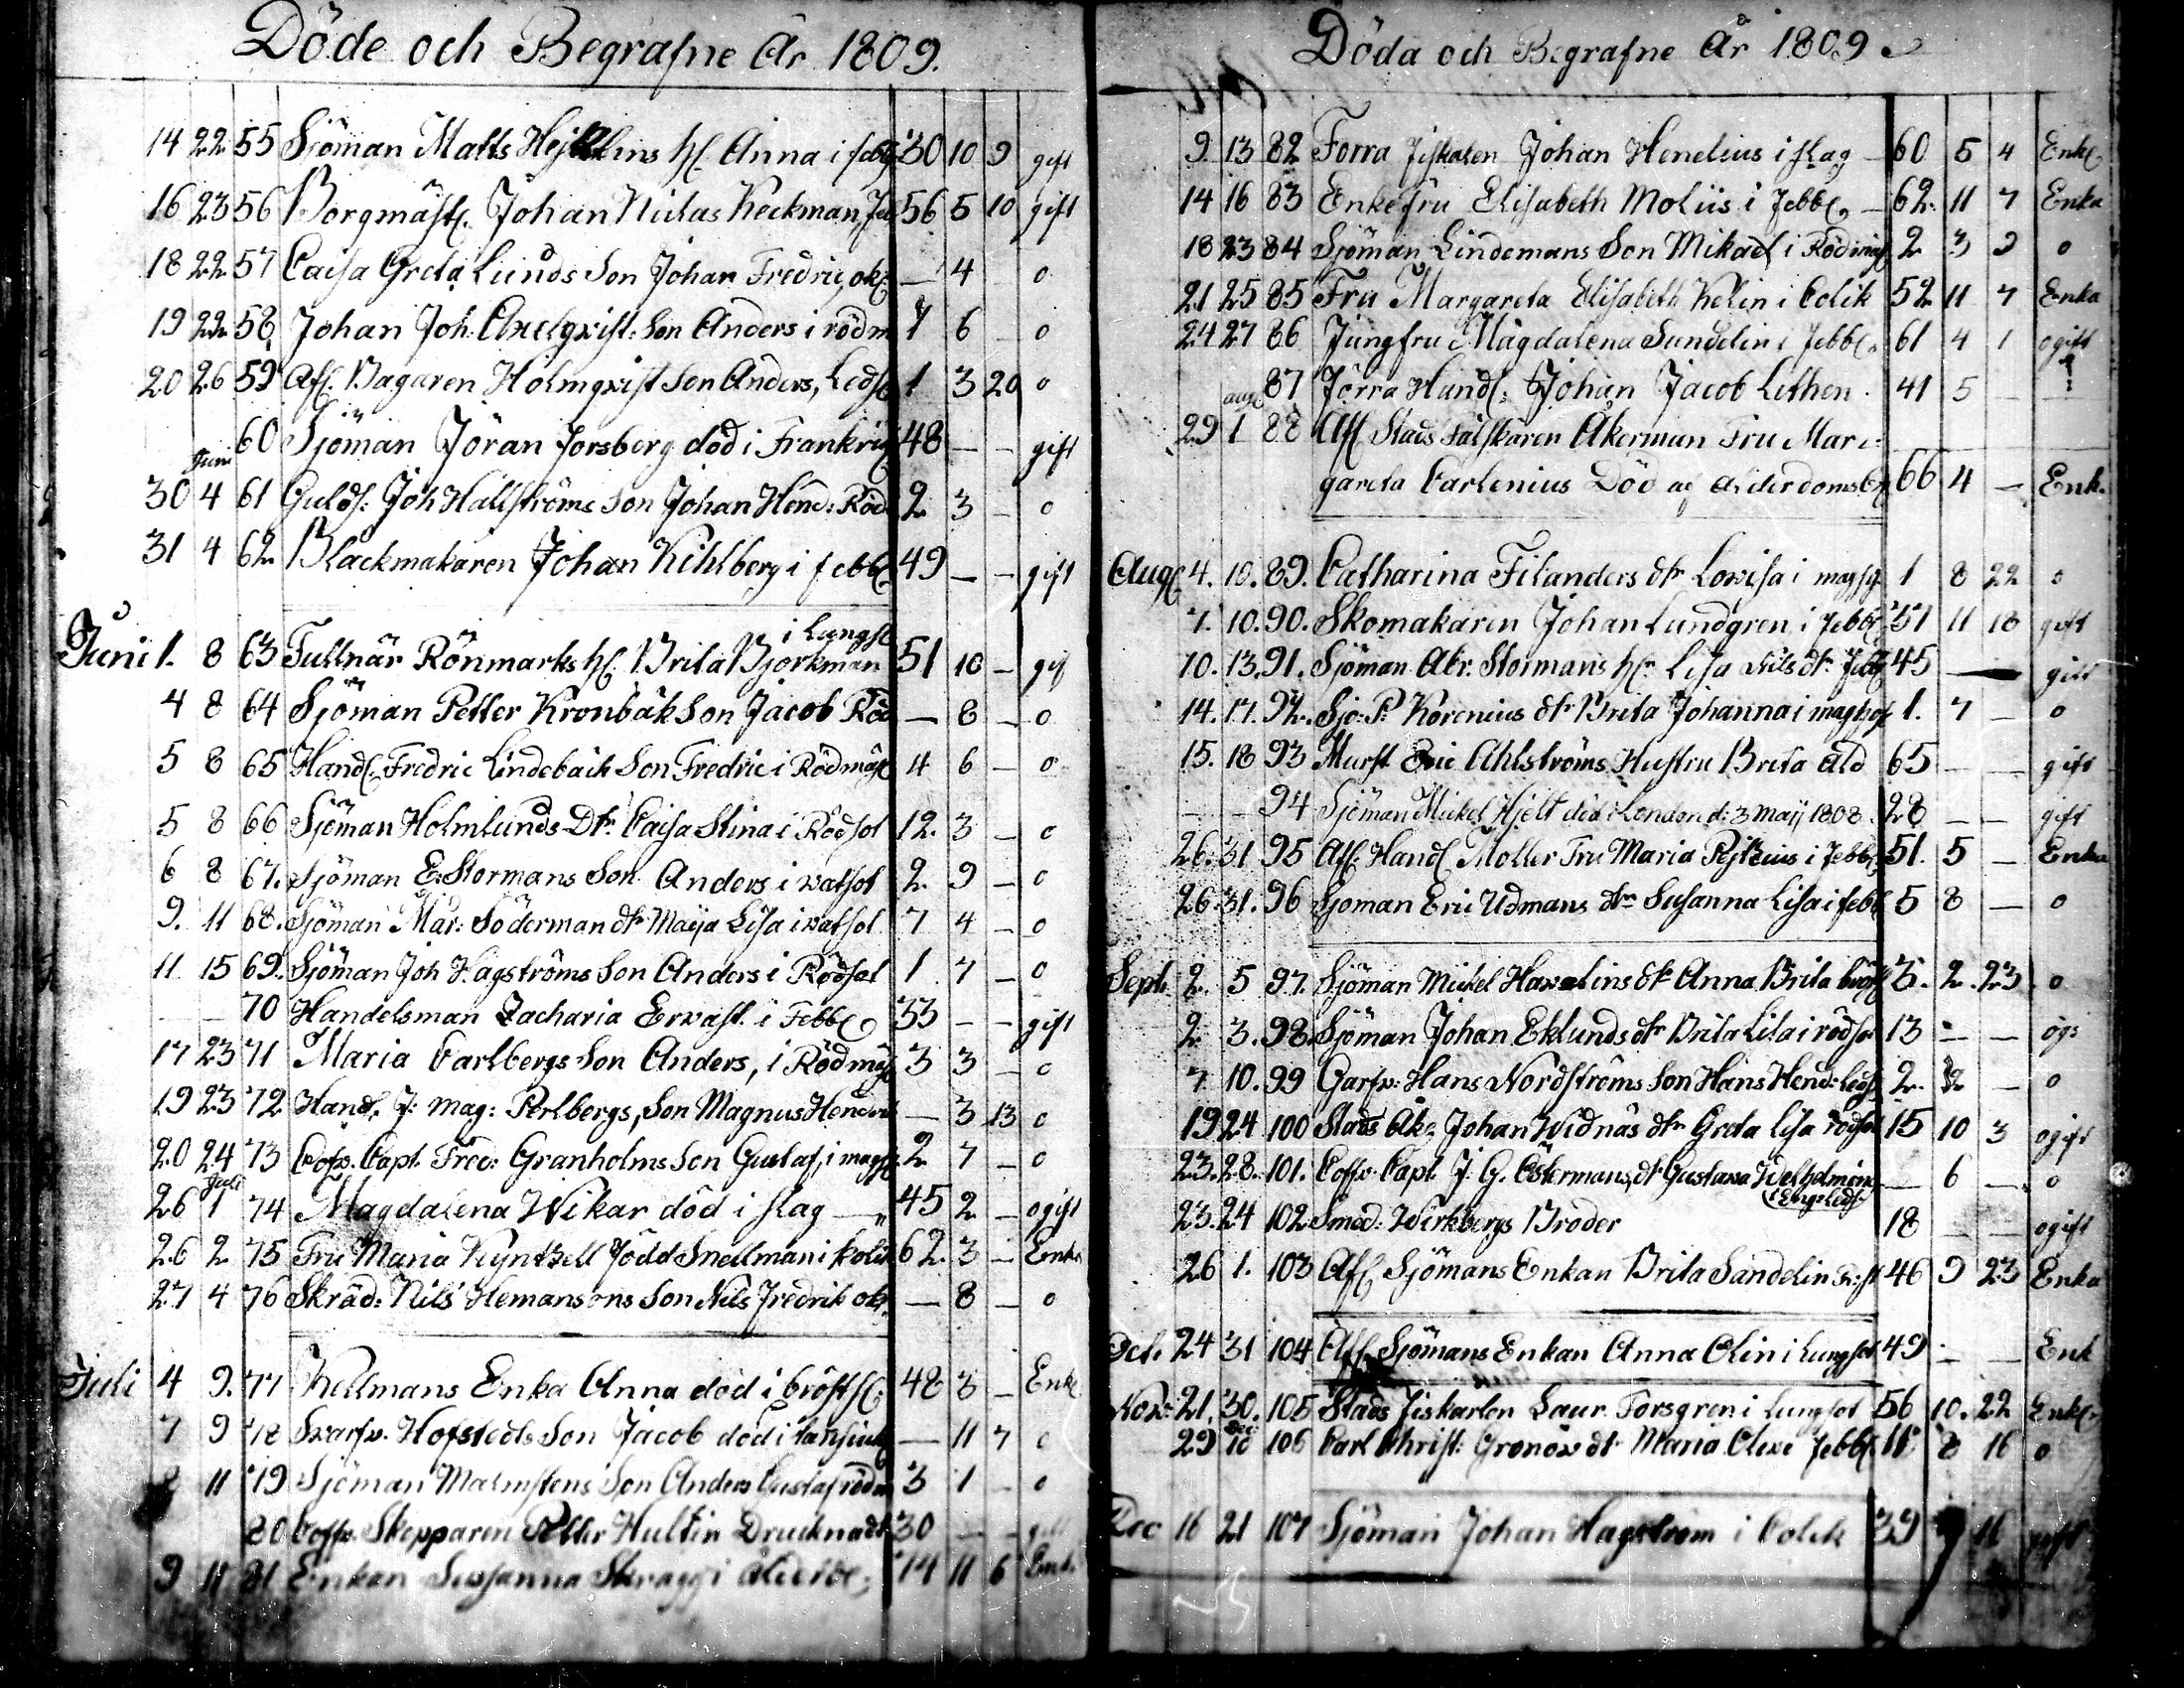 Döde och Begrafne År 1809.
14 22 55 Sjöman Matts Hejklins hℓ. Anna i febℓ 30 10 9 gift
16 23 56 Borgmästℓ. Johan Niclas Keckman, 56 5 10 gift
18 22 57 Caisa Greta Lunds Son Johan Fredric, — 4 o
19 22 58 Johan Joh. Axelqvist: Son Anders i rödm 7 6 – o
20 26 59 Afℓ. Bagaren Holmqvist Son Anders, 1 3 20 o
60 Sjöman Jöran Forsberg död i Frankrig 48 – – gift
Juni
30 4 61 Gulds: Joh Hallströms Son Johan Hend: Röd 2 3 – o
31 4 62 Blackmakaren Johan Kihlberg i febbℓ 49 – – gift
i Lungsℓ
Juni 1. 8 63 Tullnär Rönmarks hℓ. Brita Bjorkman 51 10 – gif
4 8 64 Sjöman Petter Kronbäk Son Jacob Röd — 8 – o
5 8 65 Handℓ. Fredric Lindebäck Son Fredric i Rödmäsℓ 4 6 – o
5 8 66 Sjöman Holmlunds Dtr. Caisa Stina i Rödsot 12. 3 – o
6 8 67. Sjöman E. Stormans Son Anders i vatsot 2. 9 – o
9. 11 68. Sjöman Mar: Söderman dtr Maija Lisa i vatsot 7 4 – o
11 15 69. Sjöman Joh Hagströms Son Anders i Rödsot 1 7 – o
— — 70 Handelsman Zacharia Ervast i Febbℓ 33 – – gift
17 23 71 Maria Carlbergs Son Anders, i Rödmäsℓ 3 3 – o
19 23 72 Handℓ. J: Mag: Perlbergs, Son Magnus Hendric — 3 13 o
20 24 73 Cofv. Capt. Fred: Granholms Son Gustaf, i magsℓ 2 7 – o
Juli
26 1 74 Magdalena Wikar död i slag — 45 2 – ogift
26 2 75 Fru Maria Kyntzell född Snellman i kolik 62. 3 – Enka
27 4 76 Skräd: Nils Hemansons Son Nils Fredrik — 8 – o
Juli 4 9. 77 Kellmans Enka Anna död i bröstsℓ 48 3 – Enkℓ
7 9 78 Svarfv. Hofsteds Son Jacob död i — 11 7 o
8 11 79 Sjöman Malmstens Son Anders Gustaf rödm 3 1 – o
80 Coffv. Skepparen Petter Hultin Drucknadt 30 – – gift
9 11 81 Enkan Susanna Skragg i ålderdℓ 74 11 6 Enk.
Döda och Begrafne År 1809
9. 13 82 Forra Fiskalen Johan Henelius i slag — 60 5 4 Enkℓ
14 16 83 Enkefru Elisabeth Moliis i Febbℓ — 62. 11 7 Enka
18 23 84 Sjöman Lindemans Son Mikael i Rödmäsℓ 2 3 2 o
21 25 85 Fru Margareta Elisabeth Kelin i Colik 52 11 7 Enka
24 27 86 Jungfru Magdalena Sundelin i Febbℓ. 61 4 1 ogift
87 Förra Handℓ: Johan Jacob Lithen. 41 5 –
augℓ
29 1 88 Afℓ Stads Fältskären Åkerman Fru Mar=
gareta Carlenius Död af ålderdomsbrℓ 66 4 — Enk.
Augℓ 4. 10. 89. Catharina Filanders dtr Lovisa i magsjℓ 1 8 22 o
7. 10. 90. Skomakaren Johan Lundgren i Febbℓ 37 11 18 gift
10. 13. 91. Sjöman Abr. Stormans hℓr Lisa Nils dtr. Febbℓ 45 — gift
14. 17. 92. Sjö: P: Korenius dtr Brita Johanna i maghosℓ 1. 7 – o
15. 18 93 Murst Eric Ahlströms Hustru Brita Ald 65 – – gift
– – 94 Sjöman Mickel Hjelt död i London d: 3 Maij 1808. 28 – – gift
26. 31 95 Afℓ. Handℓ Moller Fru Maria Pejtzius i Febbℓ 51. 5 – Enka
26. 31. 96 Sjöman Eric Udmans dtr Susanna Lisa i febℓ 5 8 – o
Sept. 2. 5 97. Sjöman Mickel Havelins dtr Anna Brita bröstℓ 3. 2. 23. o
2 3. 98. Sjöman Johan Eklunds dtr Brita Lisa i rödsot 13 – – ogi
7. 10. 99 Garfv: Hans Nordströms Son Hans Hend: 2. 2 – o
19 24 100 Stads Åkℓ. Johan Widnäs dtr Greta Lisa rödsot 15 10 3 ogift
23. 28. 101. Coffv. Capt. J: G. Östermans, dtr Gustava Welhelmina — 6 – o
23. 24 102 Smed: Wirkbergs Broder 18 – – ogift
26 1. 103 Afℓ Sjömans Enkan Brita Sandelin 46 9 23 Enka
Oct. 24 31 104 Afℓ. Sjömans Enkan Anna Olin i Lungsot 49 – – Enk
Nov: 21. 30. 105 Stads Fiskarlen Laur. Forsgren i Lungsot 56 10. 22 Enkℓ.
Dec
29 10 106 Carl Christ: Gronov dtr Maria Olive Febbℓ 11 8 16 o
Dec 16 21 107 Sjöman Johan Hagström i Colik 39 9 16 gift